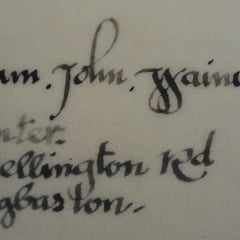 am. John. Waino
nter.
ellington Rd
gbaston.